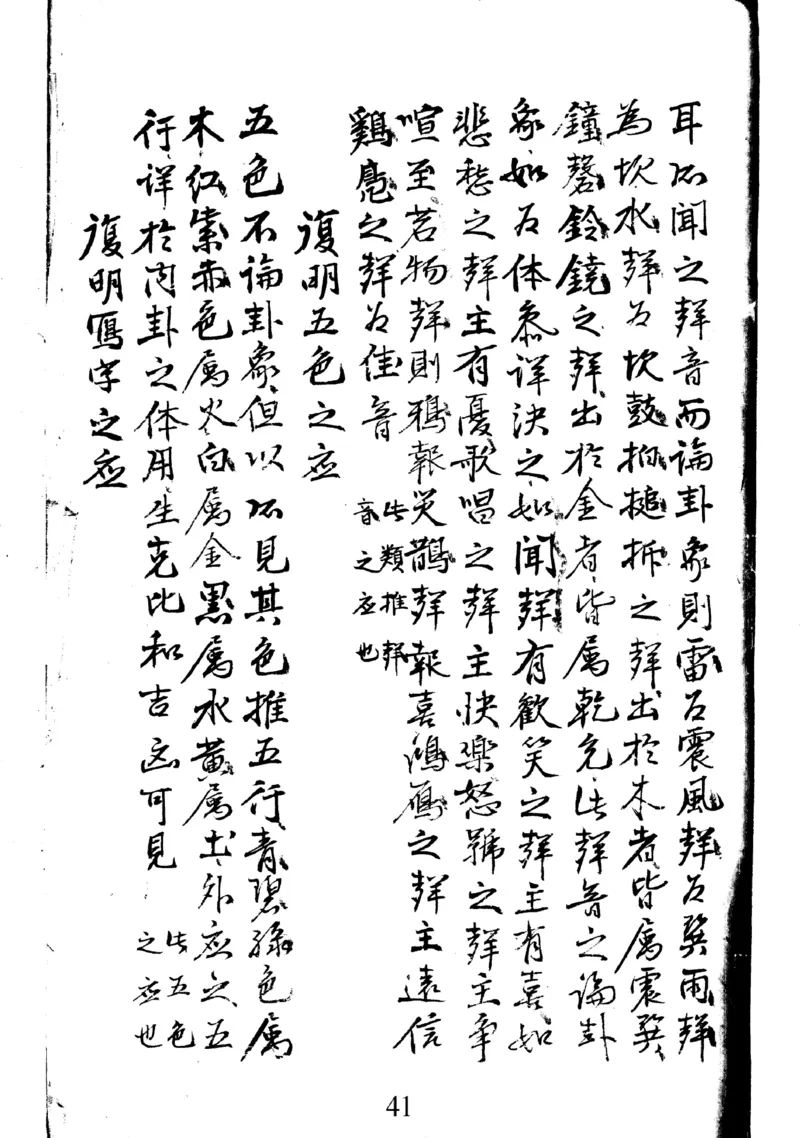 耳所聞之聲音而論卦象則雷為震風聲為巽雨聲
為坎水聲為坎鼓拍搥拆之聲出於木者皆屬震巽
鐘磬鈴鐃之聲出於金者皆屬乾兌此聲音之論卦
象如為体叅詳決之如聞聲有歡笑之聲主有喜如
悲愁之聲主有憂歌唱之聲主快樂怒號之聲主爭
喧至若物聲則鴉報災鵲聲報喜鴻鴈之聲主遠信
鷄鳧之聲為佳音 此類推聲音之应也
復明五色之应
五色不論卦象但以所見其色推五行青碧綠色属
木红紫赤色属火白属金黑属水黄属土外应之五
行详於内卦之体用生克比和吉凶可見 此五色之应也
復明寫字之应
41